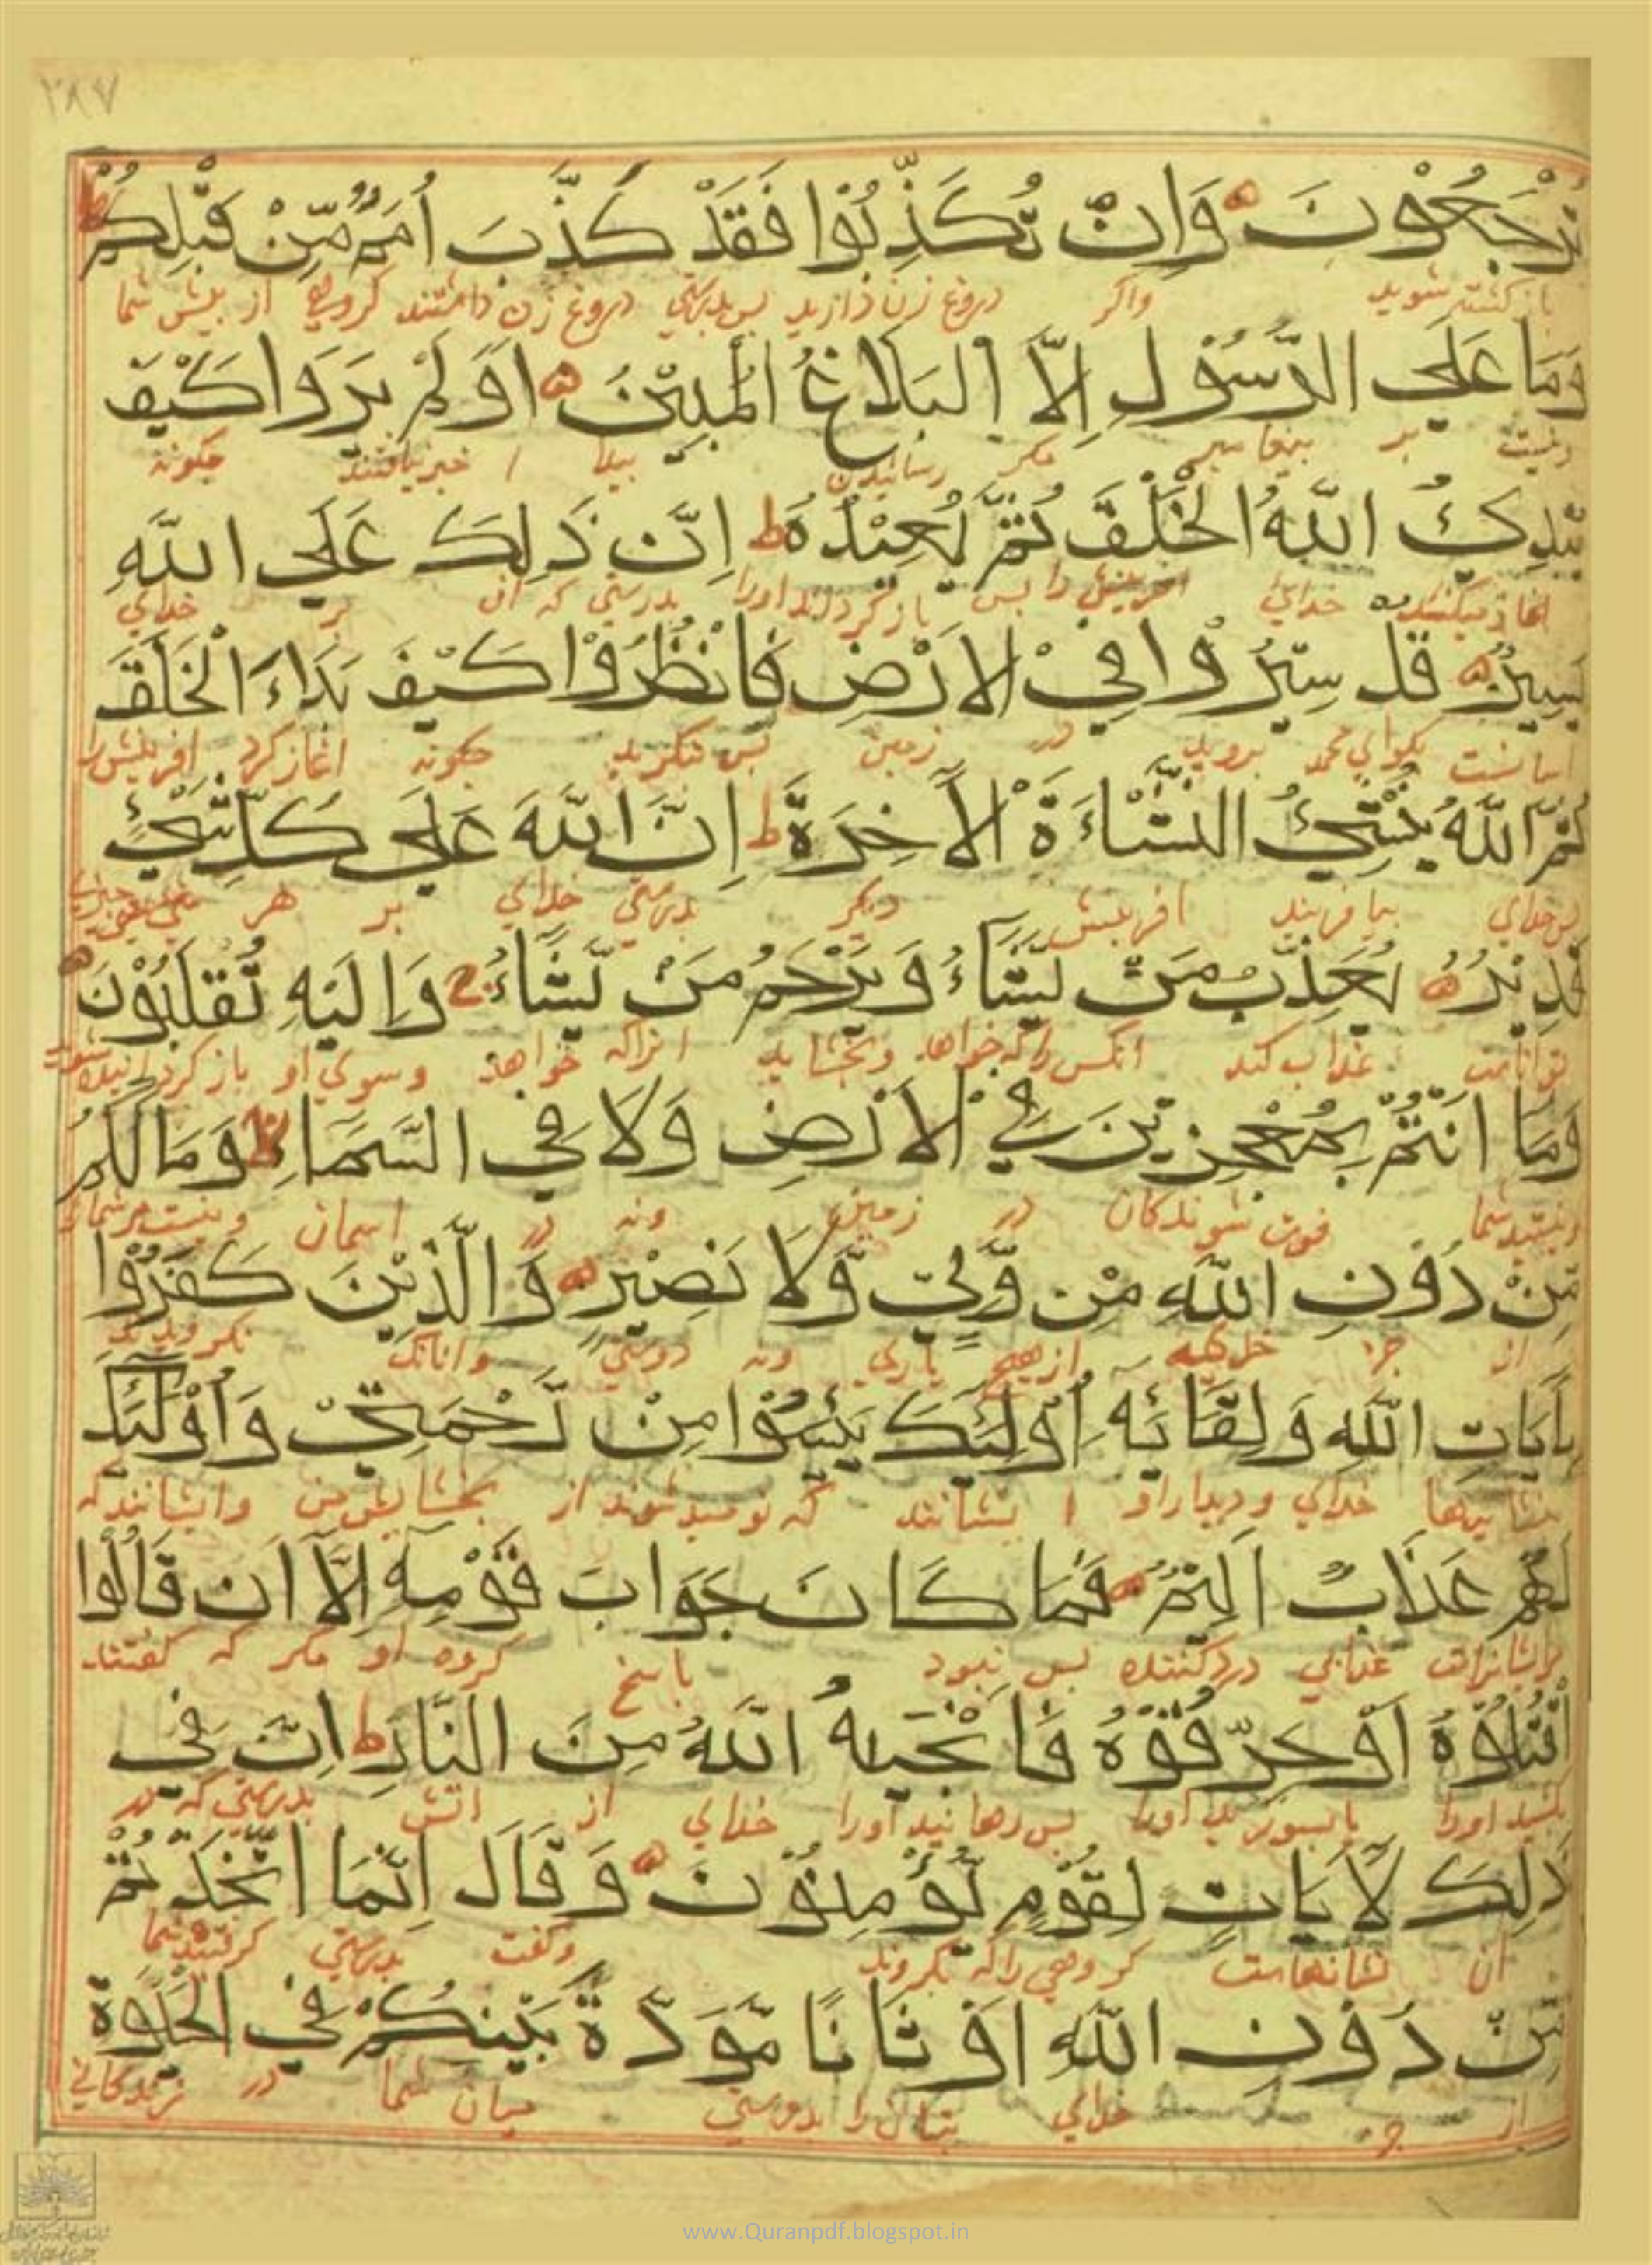 ٢٨٧
تُرْجَعُوْنَ وَاِنْ تُكَذِّبُوْا فَقَدْ كَذَّبَ اُمَمٌ مِّنْ قَبْلِكُمْ ط
باز كشته شويد واكر دروغ زن داريد بس بدرستي دروغ زن داشتند كروهي از بيش شما
وَمَا عَلَي الرَّسُوْلِ اِلاَّ الْبَلَاغُ الْمُبِيْنُ اَوَلَمْ يَرَوْا كَيْفَ
ونيست بر بيغامبر مكر رسانيدن بيدا ا خبر نيافتند جكونه
يُبْدِئُ اللّٰهُ الْخَلْقَ ثُمَّ يُعِيْدُهُ ط اِنَّ ذَلِكَ عَلَي اللّٰهِ
اغاز ميكند خداي افرينش را بس باز كرداند اورا بدرستي كه ان بر خداي
يَسِيْرٌ قُلْ سِيْرُوْا فِيْ الْاَرْضِ فَانْظُرُوْا كَيْفَ بَدَاءَ الْخَلْقَ
اسانست بكواي محمد برويد در زمين بس بنكريد جكونه اغاز كرد افرينش را
ثُمَّ اللّٰهُ يُنْشِئُ النَّشْاَءَةَ الْاٰخِرَةَ ط اِنَّ اللّٰهَ عَلَي كُلِّ شَيْءٍ
بس خداي بيافريند افرينش ديكر بدرستي خداي بر هر
قَدِيْرٌ يُعَذِّبُ مَنْ يَّشَاءُ وَيَرْحَمُ مَنْ يَّشَاءُ وَاِلَيْهِ تُقْلَبُوْنَ
تواناست عذاب كند انكس را كه خواهد وبخشايد انراكه خواهد وسوي او باز كردانيده شويد
وَمَا اَنْتُمْ بِمُعْجِزِيْنَ فِي الْاَرْضِ وَلَا فِي السَّمَاءِ ط وَمَا لَكُمْ
ونيستيد شما فوت شوندكان در زمين ونه در اسمان ونيست مر شمارا
مِّنْ دُوْنِ اللّٰهِ مِنْ وَّلِيٍّ وَّلَا نَصِيْرٍ وَالَّذِيْنَ كَفَرُوْا
از جز خداي از هيج ياري ونه دوستي وانانكه نكرويدند
بِاٰيَاتِ اللّٰهِ وَلِقَائِهِ اُوْلَئِكَ يَئِسُوْا مِنْ رَّحْمَتِيْ وَاُوْلَئِكَ
بنشانيها خداي وديدار او ا يشانند كه نوميد شوند از بخشايش من وايشانند كه
لَهُمْ عَذَابٌ اَلِيْمٌ فَمَا كَانَ جَوَابَ قَوْمِهِ اِلَّا اَنْ قَالُوا
مرايشانراست عذابي درد كننده بس نبود باسخ كروه او مكر كه كفتند
اقْتُلُوْهُ اَوْ حَرِّقُوْهُ فَاَنْجٰيهُ اللّٰهُ مِنَ النَّارِ ط اِنَّ فِي
بكشيد اورا يا بسوزيد اورا بس رهانيد اورا خداي از اتش بدرستي كه در
ذَلِكَ لَاٰيَاتٍ لِقَوْمٍ يُّؤْمِنُوْنَ وَقَالَ اِنَّمَا اتَّخَذْتُمْ
ان نشانهاست كروهي راكه بكروند وكفت بدرستي كرفتيد شما
مِّنْ دُوْنِ اللّٰهِ اَوْثَانًا مَّوَدَّةَ بَيْنِكُمْ فِي الْحَيٰوةِ
از جز خداي بتان را بدوستي ميان شما در زندكاني
www.Quranpdf.blogspot.in